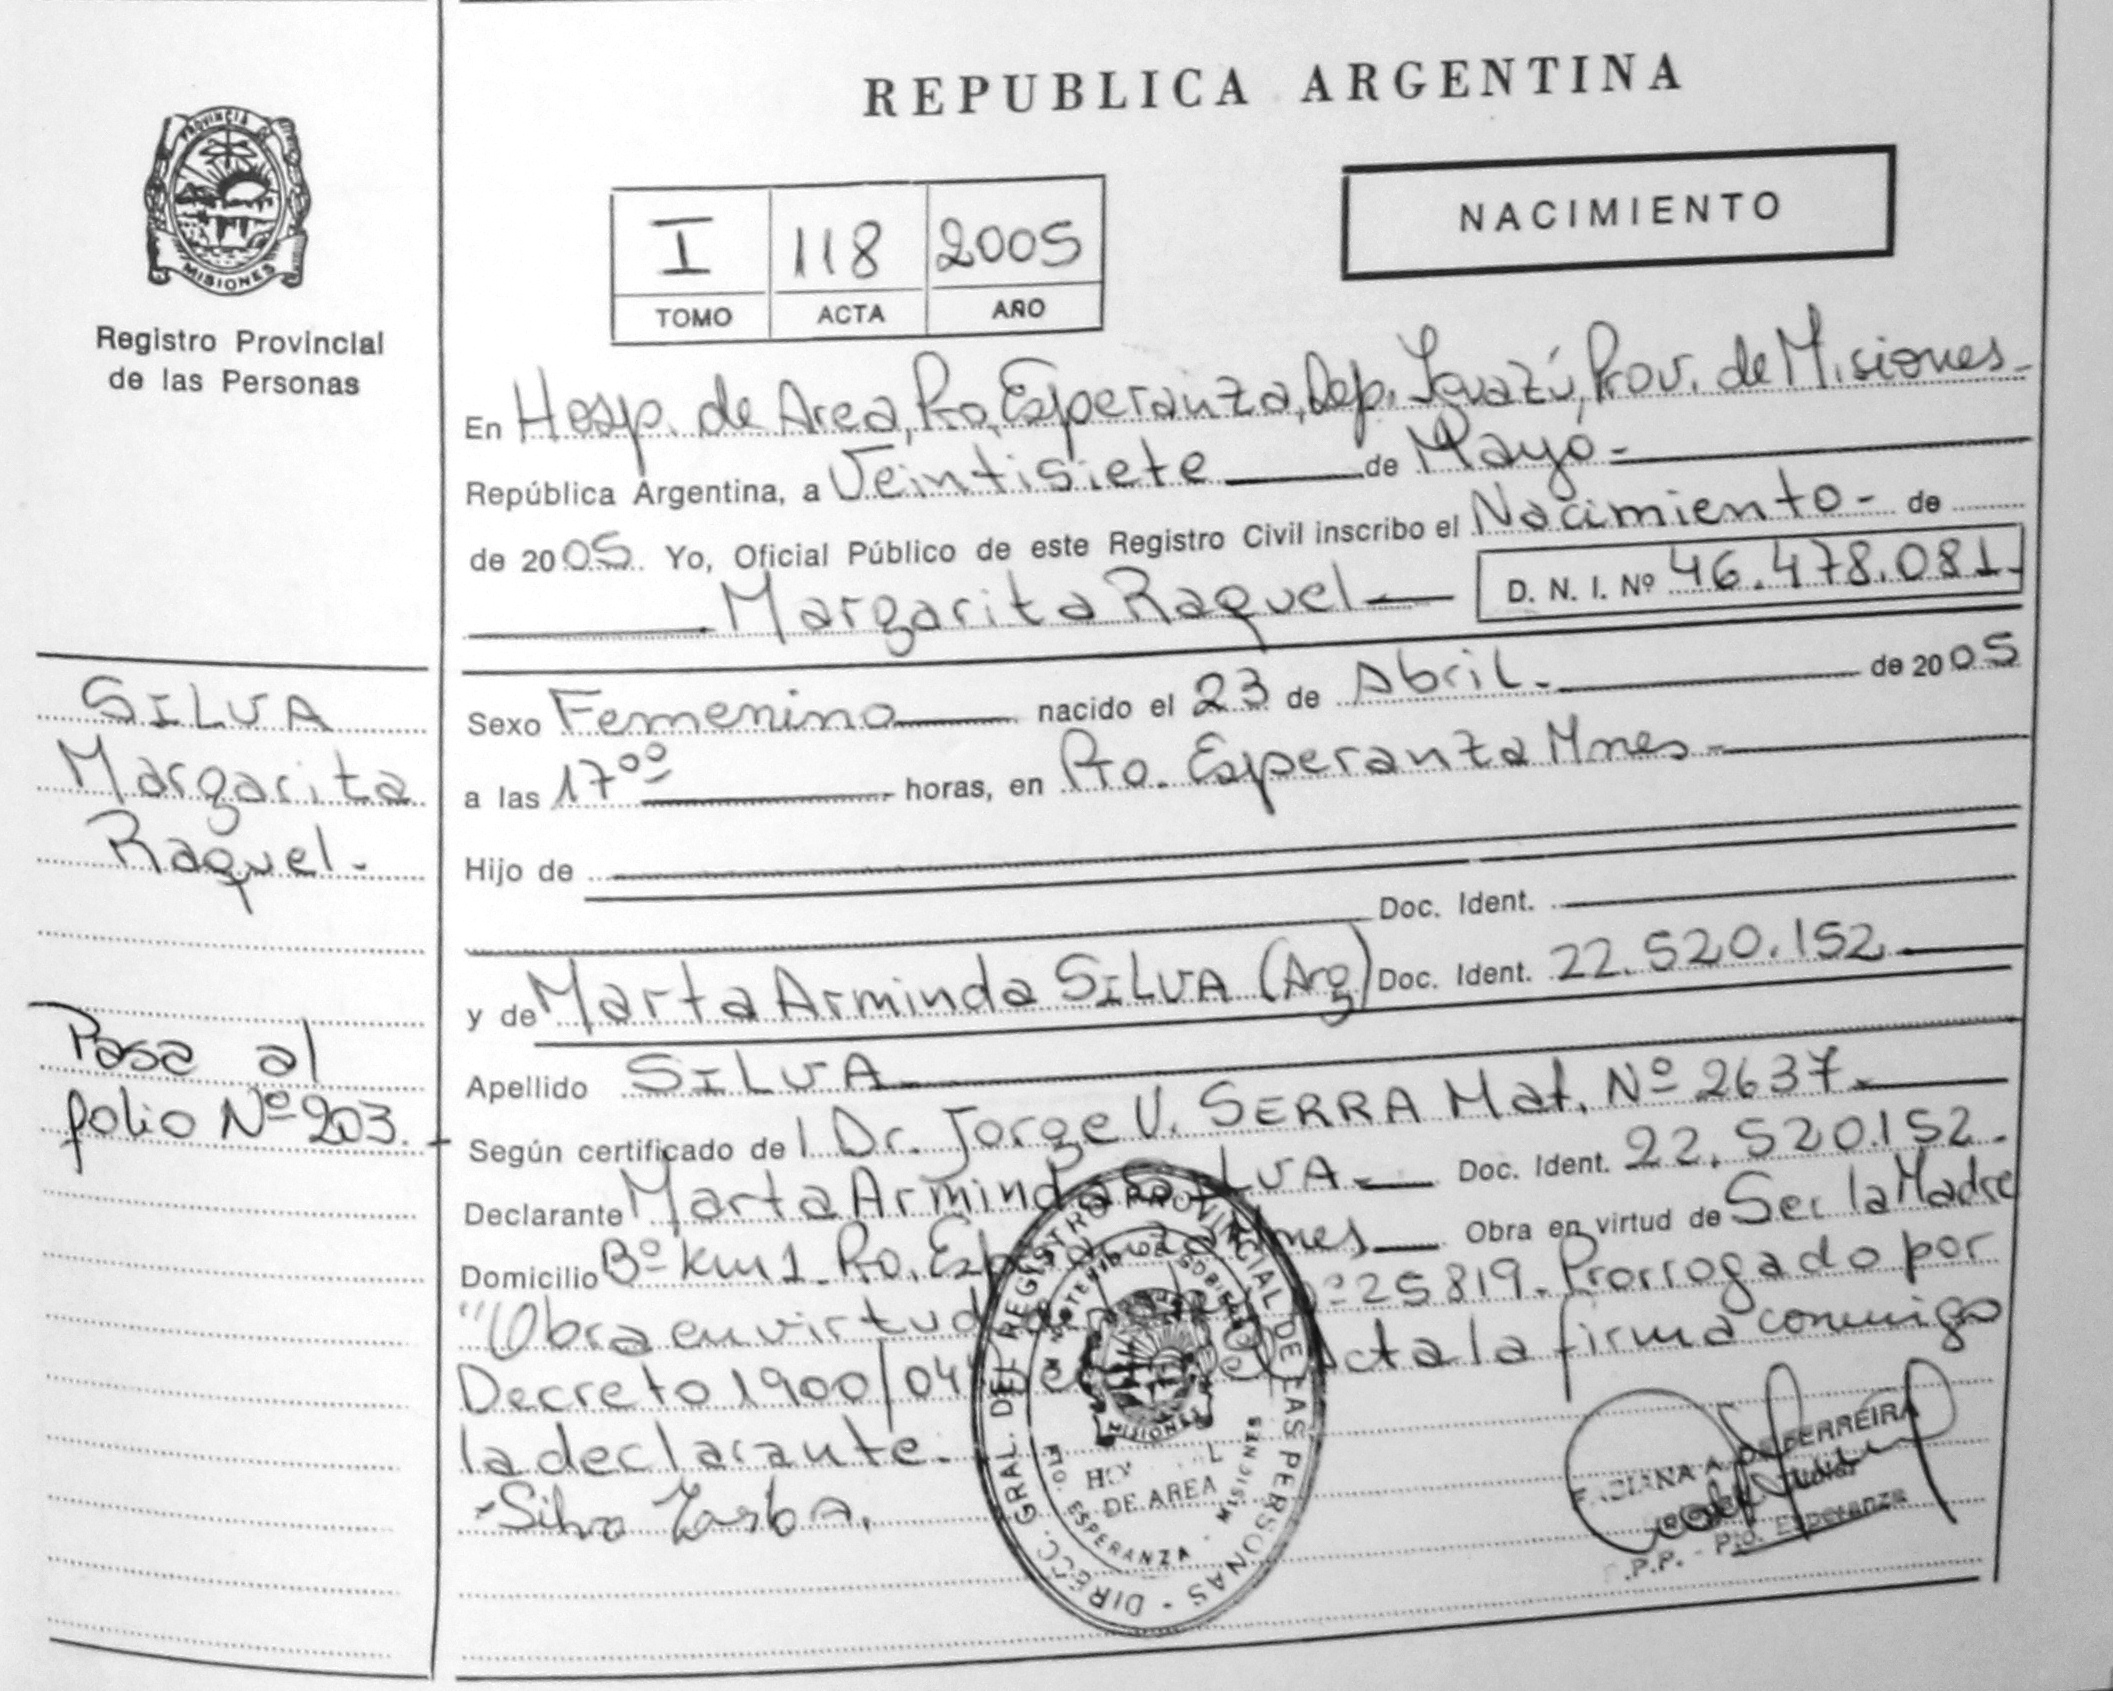 REPUBLICA ARGENTINA
PROVINCIA DE
MISIONES
Registro Provincial
de las Personas
I 118 2005
TOMO ACTA AÑO
NACIMIENTO
En Hosp. de Area, Pto. Esperanza, Dep. Iguazú, Prov. de Misiones-
República Argentina, a Veintisiete de Mayo-
de 2005. Yo, Oficial Público de este Registro Civil inscribo el Nacimiento- de
Margarita Raquel D. N. I. Nº 46.478.081.
Sexo Femenino nacido el 23 de Abril. de 2005
a las 17ºº horas, en Pto. Esperanza Mnes-
Hijo de
Doc. Ident.
y de Marta Arminda SILVA (Arg) Doc. Ident. 22.520.152
Apellido SILVA
Según certificado de l Dr. Jorge V. SERRA Mat. Nº 2637.
Declarante Marta Arminda SILVA. Doc. Ident. 22.520.152.
Domicilio Bº Km 1 Pto. Esperanza Mnes Obra en virtud de Ser la Madre
"Obra en virtud Nº 25819. Prorrogado por
Decreto 1900/04" el Acta la firma conmigo
la declarante.
SILVA
Margarita
Raquel.
Pasa al
folio Nº 203.
DIRECC. GRAL. DEL REGISTRO PROVINCIAL DE LAS PERSONAS
MISIONES
DE AREA
PTO. ESPERANZA - MISIONES
FERREIRA
Pto. Esperanza